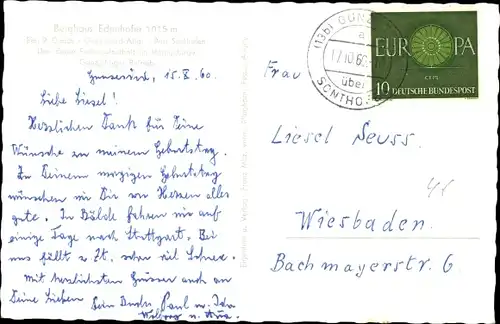 Berghaus Edmshofer 1015 m
Gunzesried, 15. X. 60.
Liebe Liesel!
Herzlichen Dank für Deine
Wünsche zu meinem Geburtstag.
Zu Deinem morgigen Geburtstag
wünschen wir Dir von Herzen alles
gute. In Bälde fahren wir auf
einige Tage nach Stuttgart. Bei
uns fällt z. Zt. schon viel Schnee.
Mit herzlichsten Grüssen auch an
Deine Lieben
Dein Bruder Paul u. Ida
EUROPA
CEPT
10 DEUTSCHE BUNDESPOST
(13b) GUNZ
a
17.10.60
über
SONTHO
Frau
Liesel Seuss.
Wiesbaden.
Bachmayerstr. 6